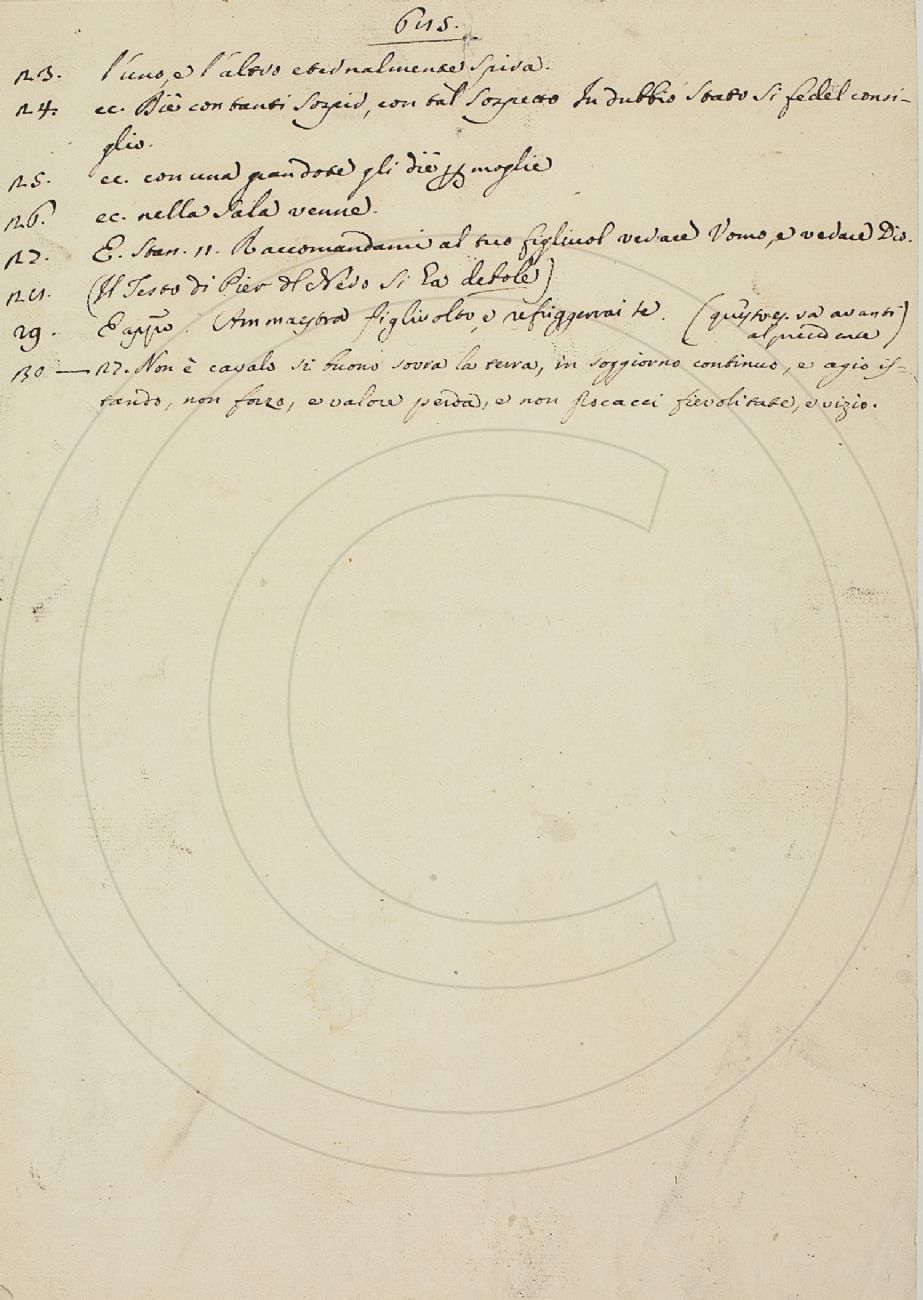 685.
123. l'uno, e l'altro eternalmente spira.
124. ec. Diè con tanti sospir, con tal sospetto In dubbio stato si fedel consi-
glio.
125. ec. con una gran dote gli diè per moglie
126. ec. nella Sala venne.
127. E. Stan. 11. Raccomandami al tuo figliuol verace Vomo, e verace Dio.
128. (Il Testo di Pier del Nero si ha debole)
129. E app.o. Ammaestra figliuolto, e refriggerrai te. (questo es. va avanti
al precedente)
130 — 127. Non è cavalo si buono sovra la terra, in soggiorno continuo, e agio is-
tando, non forzo, e valore perda, e non procacci fievolitate, e vizio.